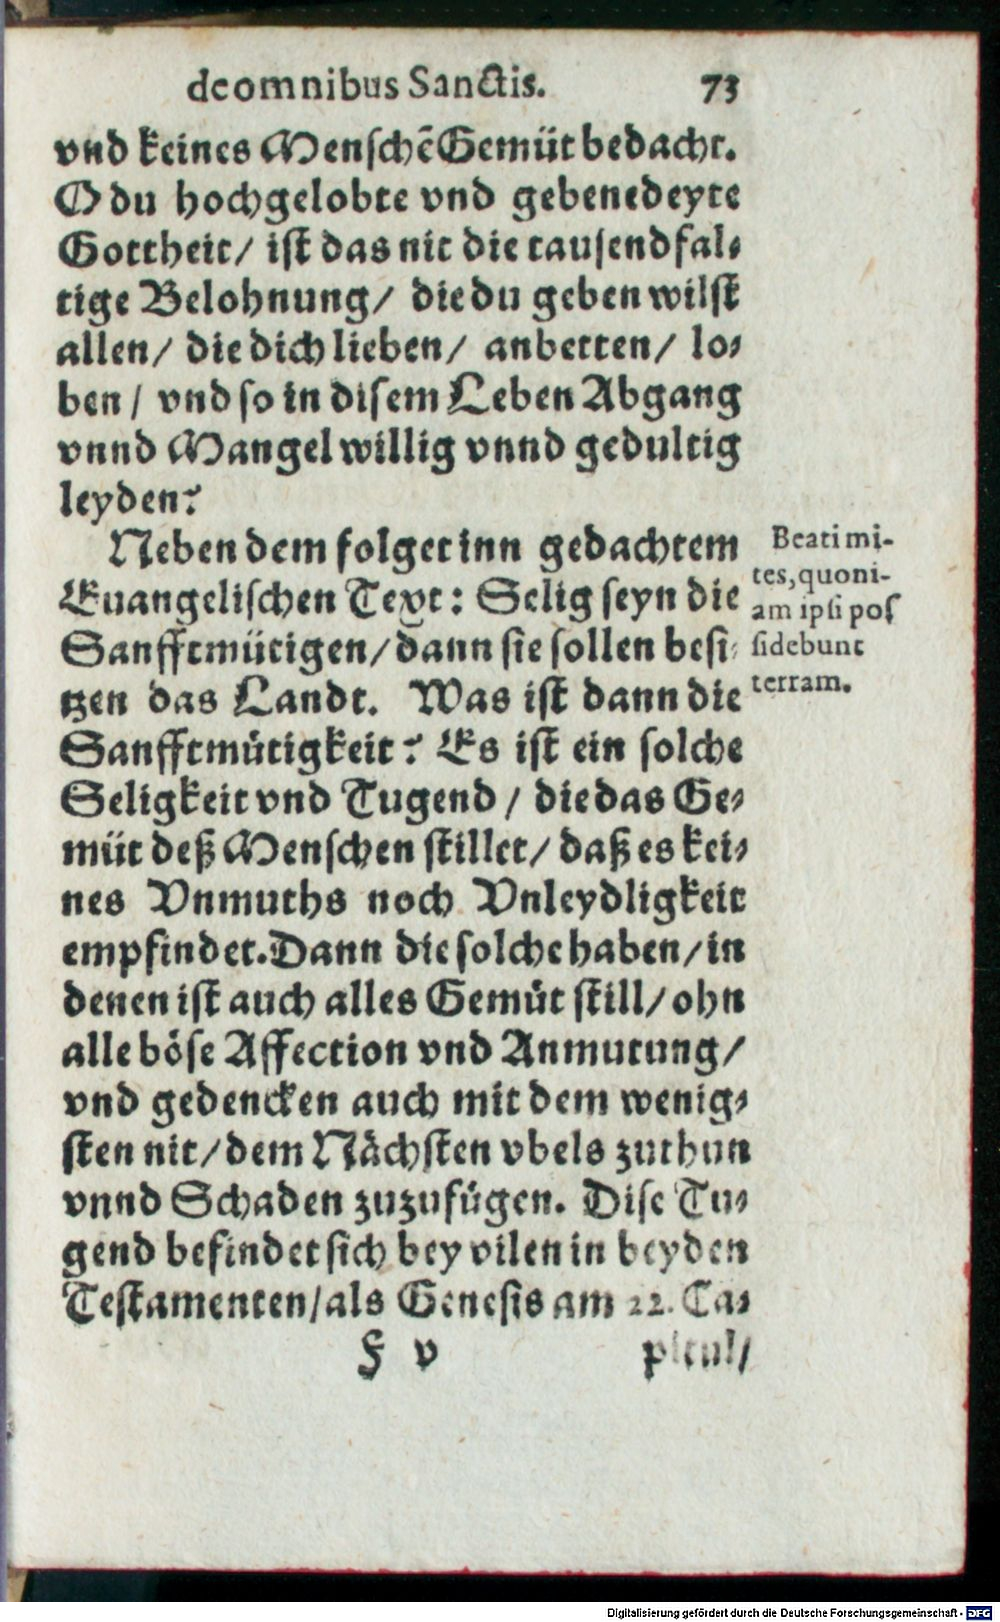 de omnibus Sanctis. 73
vnd keines Menschẽ Gemüt bedacht.
O du hochgelobte vnd gebenedeyte
Gottheit/ ist das nit die tausendfal-
tige Belohnung/ die du geben wilst
allen/ die dich lieben/ anbetten/ lo-
ben/ vnd so in disem Leben Abgang
vnnd Mangel willig vnnd gedultig
leyden?
Neben dem folget inn gedachtem
Euangelischen Text: Selig seyn die
Sanfftmütigen/ dann sie sollen besi-
tzen das Landt. Was ist dann die
Sanfftmütigkeit? Es ist ein solche
Seligkeit vnd Tugend/ die das Ge-
müt deß Menschen stillet/ daß es kei-
nes Vnmuths noch Vnleydligkeit
empfindet. Dann die solche haben/ in
denen ist auch alles Gemüt still/ ohn
alle böse Affection vnd Anmutung/
vnd gedencken auch mit dem wenig-
sten nit/ dem Nächsten vbels zuthun
vnnd Schaden zuzufügen. Dise Tu-
gend befindet sich bey vilen in beyden
Testamenten/ als Genesis am 22. Ca-
F v pitul/
Beati mi-
tes, quoni-
am ipsi pos
sidebunt
terram.
Digitalisierung gefördert durch die Deutsche Forschungsgemeinschaft - DFG